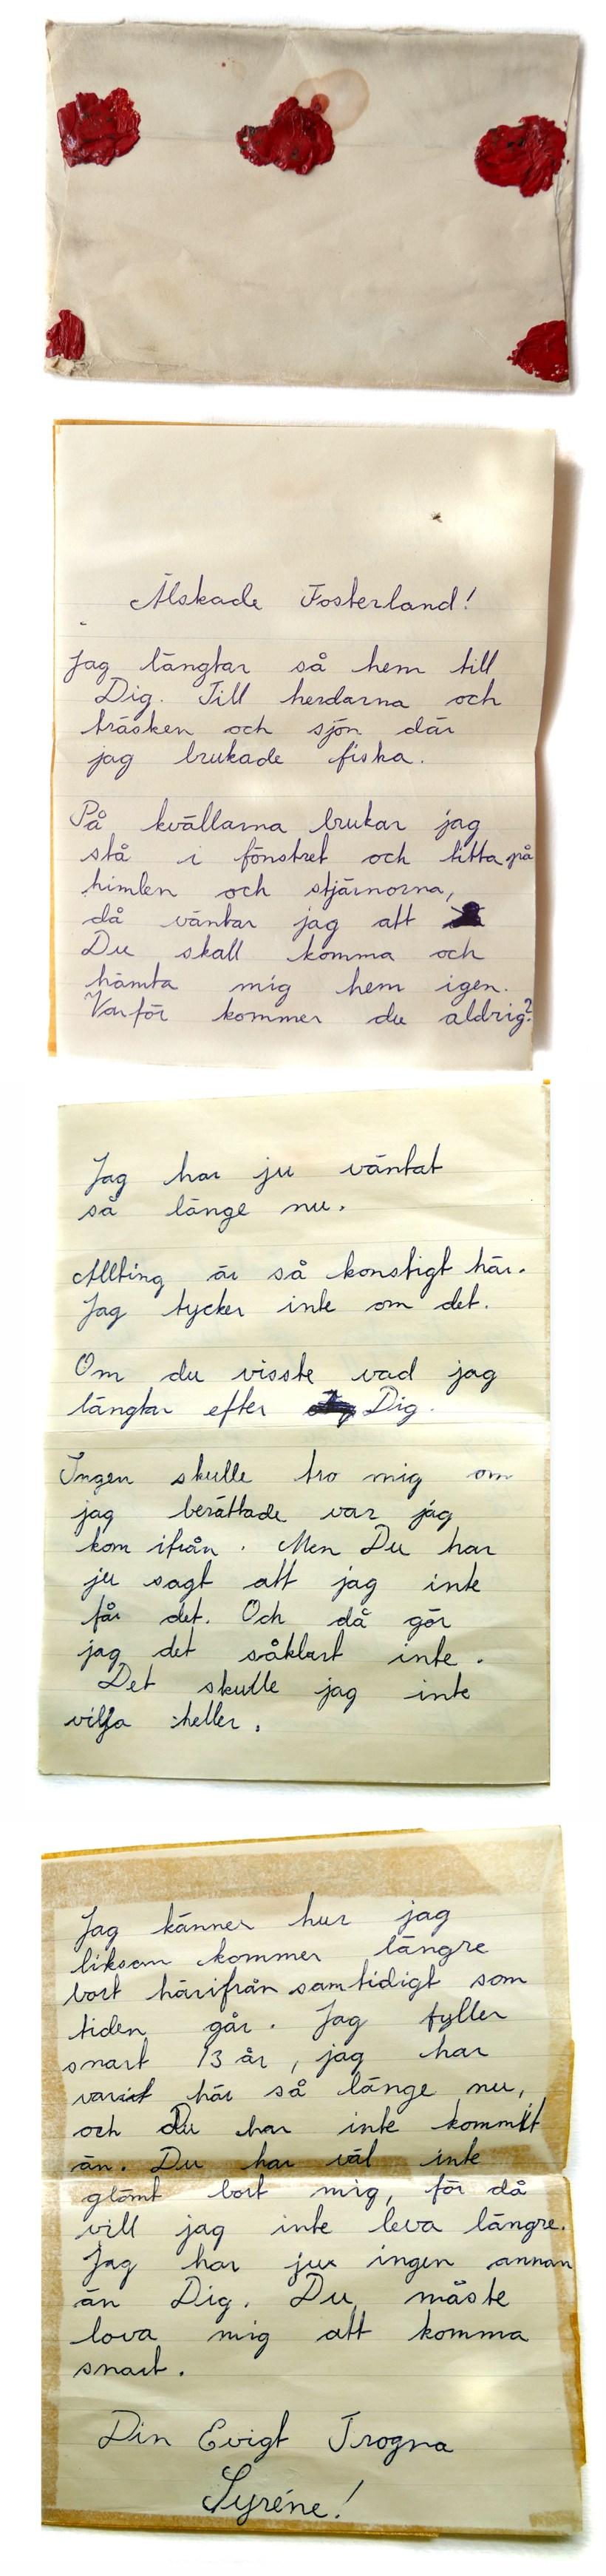 Älskade Fosterland!
Jag längtar så hem till
Dig. Till herdarna och
träsken och sjön där
jag brukade fiska.
På kvällarna brukar jag
stå i fönstret och titta på
himlen och stjärnorna,
då väntar jag att
Du skall komma och
hämta mig hem igen.
Varför kommer du aldrig?
Jag har ju väntat
så länge nu.
Allting är så konstigt här.
Jag tycker inte om det.
Om du visste vad jag
längtar efter Dig.
Ingen skulle tro mig om
jag berättade var jag
kom ifrån. Men Du har
ju sagt att jag inte
får det. Och då gör
jag det såklart inte.
Det skulle jag inte
vilja heller.
Jag känner hur jag
liksom kommer längre
bort härifrån samtidigt som
tiden går. Jag fyller
snart 13 år, jag har
varit här så länge nu,
och Du har inte kommit
än. Du har väl inte
glömt bort mig, för då
vill jag inte leva längre.
Jag har ju ingen annan
än Dig. Du måste
lova mig att komma
snart.
Din Evigt Trogna
Syréne!